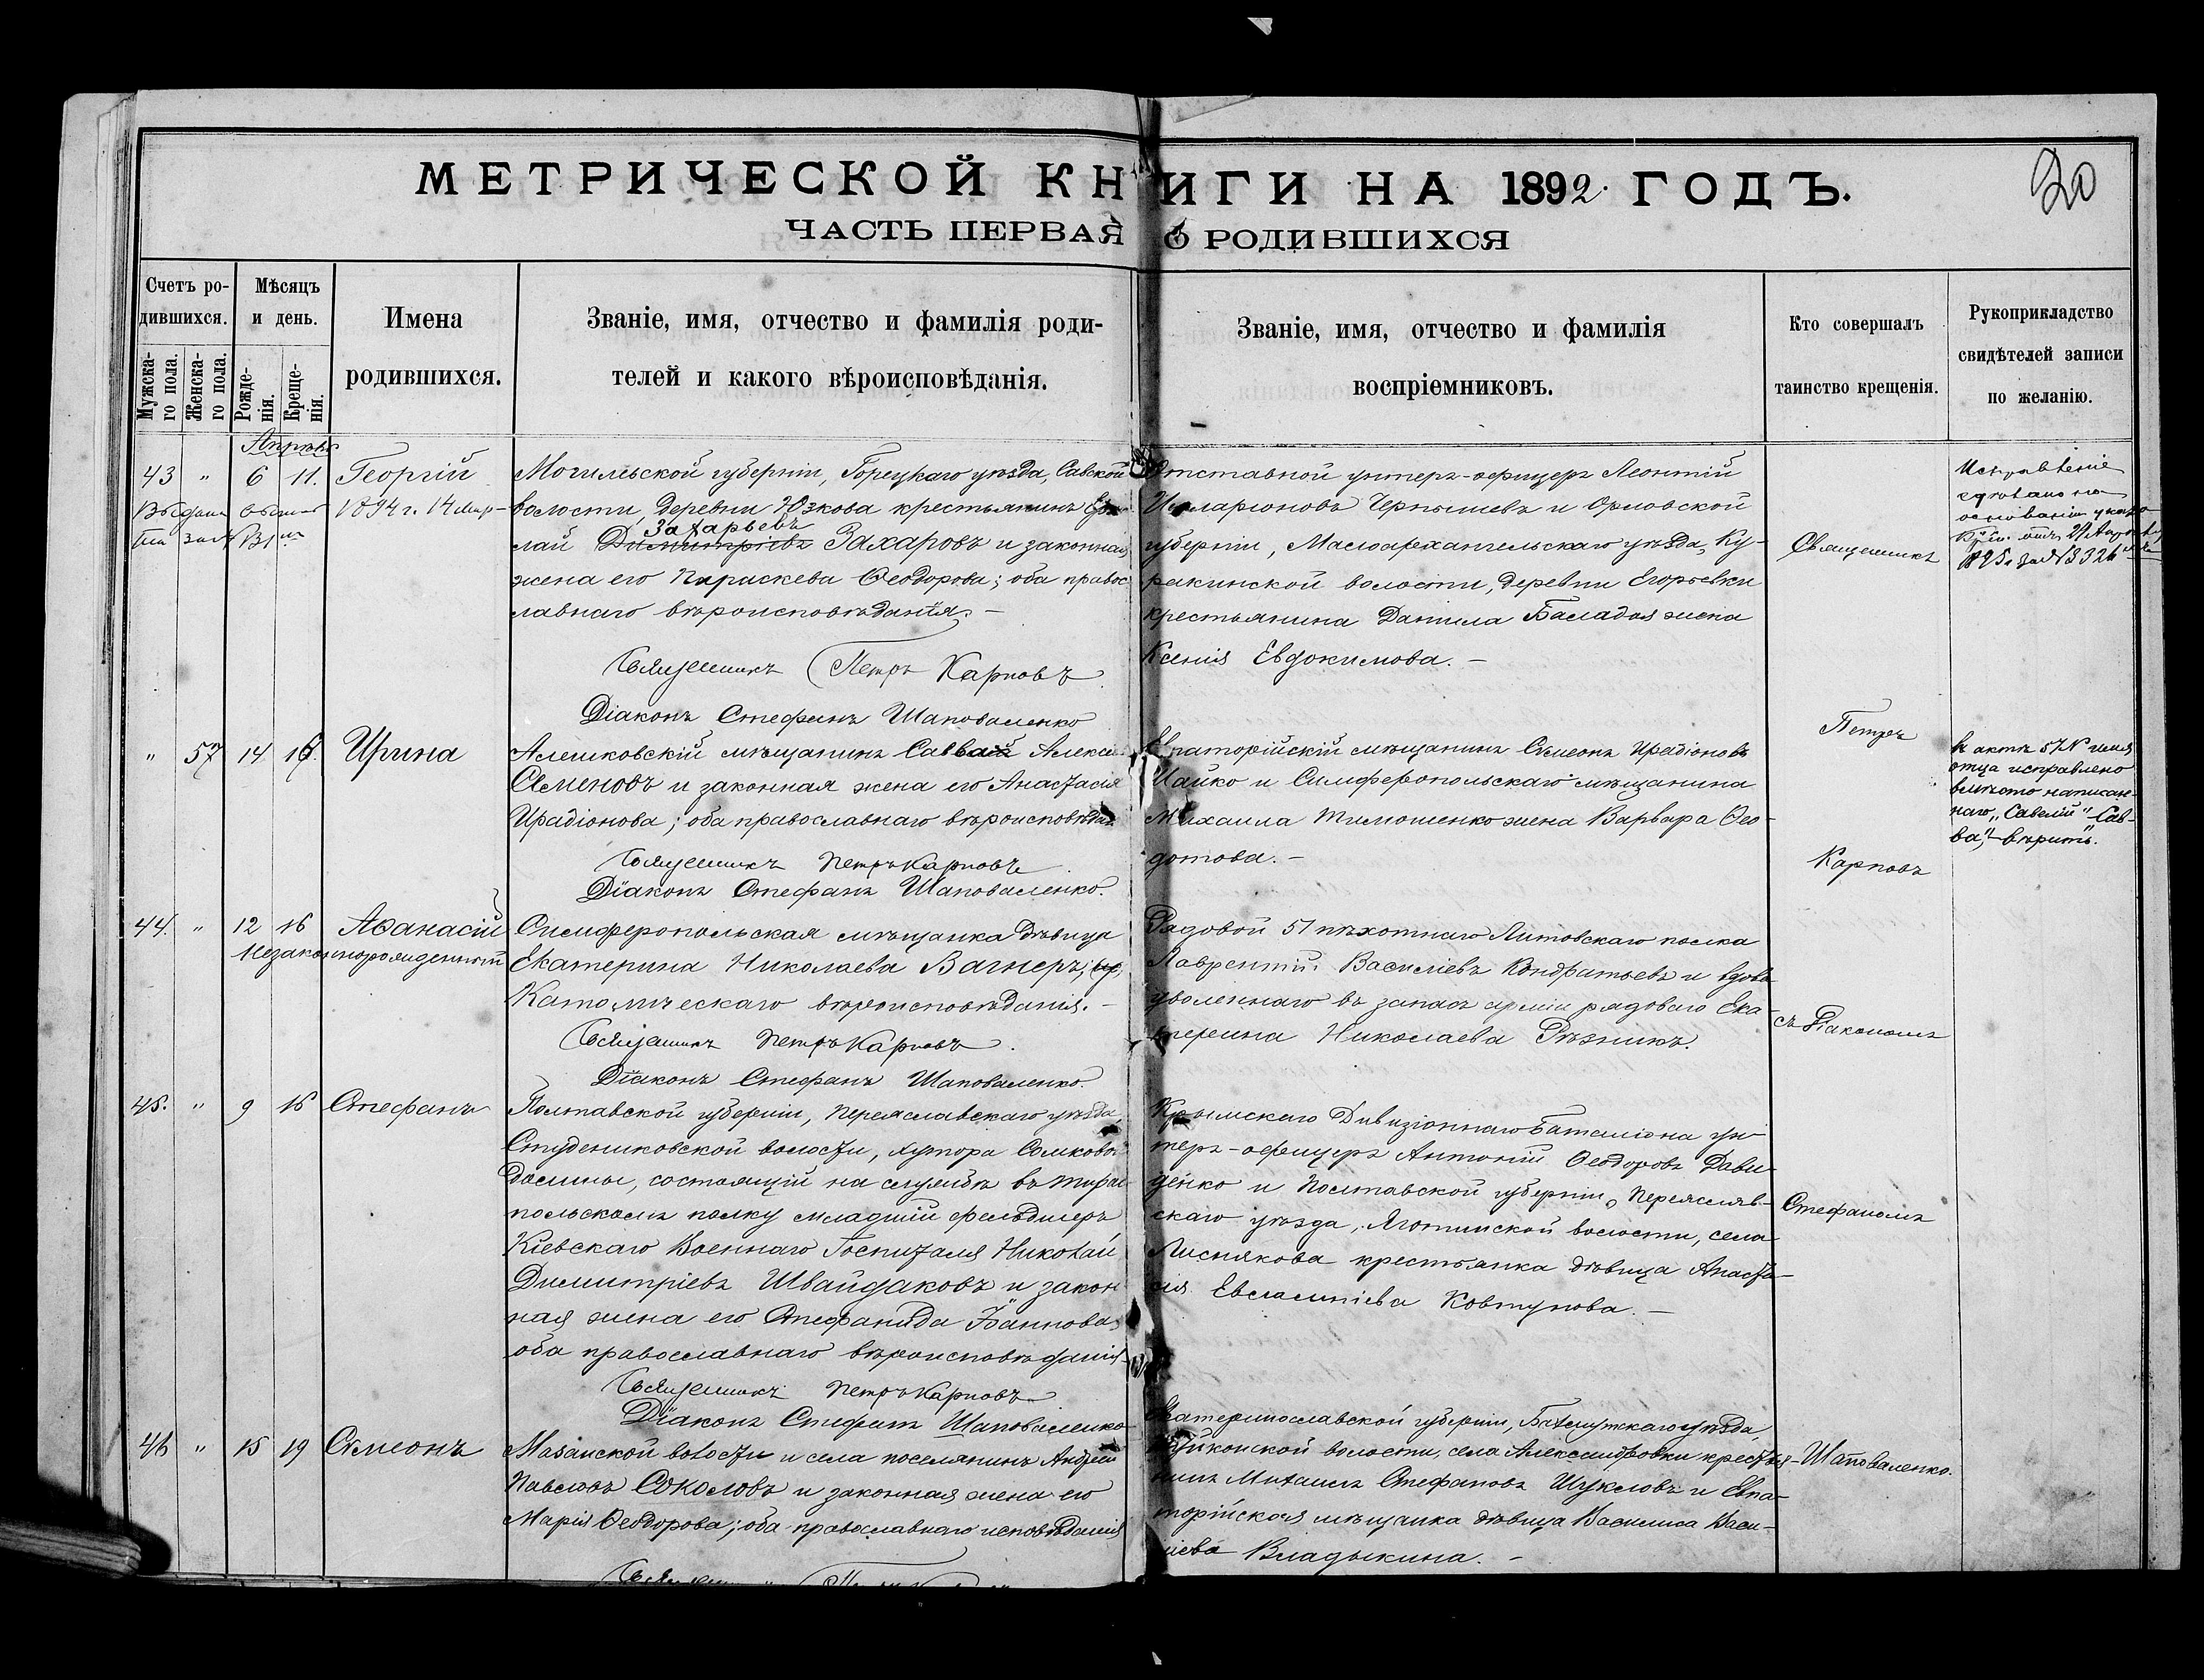 МЕТРИЧЕСКОЙ КНИГИ НА 1892 ГОДЪ.
20
ЧАСТЬ ПЕРВАЯ О РОДИВШИХСЯ
Счетъ ро-
дившихся.
Мужска-
го пола.
Женска-
го пола.
Мѣсяцъ
и день.
Рожде-
нія.
Креще-
нія.
Имена
родившихся.
Званіе, имя, отчество и фамилія роди-
телей и какого вѣроисповѣданія.
Званіе, имя, отчество и фамилія
воспріемниковъ.
Кто совершалъ
таинство крещенія.
Рукоприкладство
свидѣтелей записи
по желанію.
Апрѣль
43 " 6 11. Георгій
1894 г. 14
Могилевской губерніи, Горецкаго уѣзда, Савской
волости, деревни Юзкова крестьянинъ
лай Захарьевъ
Димитріевъ Захаровъ и законная
жена его Параскева Ѳеодорова; оба правос
лавнаго вѣроисповѣданія.-
Священникъ Петръ Карповъ
Діаконъ Стефанъ Шаповаленко
Отставной унтеръ-офицеръ Леонтій
Илларіоновъ Чернышевъ и Орловской
губерніи, Малоархангельскаго уѣзда, Ку-
ракинской волости, деревни Егорьевки
крестьянина Данила Баладая жена
Ксенія Евдокимова.-
Священникъ
Исправленіе
сдѣлано на
основаніи указа
" 57 14 16. Ирина
Алешковскій мѣщанинъ Савва
Семеновъ и законная жена его Анастасія
Ирадіонова; оба православнаго вѣроисповѣдан.
Священникъ Петръ Карповъ
Діаконъ Стефанъ Шаповаленко.
Евпаторійскій мѣщанинъ Сѵмеонъ Ирадіоновъ
Чайко и Симферопольскаго мѣщанина
Михаила Тимошенко жена Варвара Ѳео-
дотова.-
Петръ
Карповъ
в актѣ 57 № имя
отца исправлено
вмѣсто написан-
наго "Савелій" "Сав-
ва",- вѣрить.
44. " 12 16 Аѳанасій
Незаконнорожденный
Симферопольская мѣщанка дѣвица
Екатерина Николаева Вагнеръ;
Католическаго вѣроисповѣданія.-
Священникъ Петръ Карповъ.
Діаконъ Стефанъ Шаповаленко.
Рядовой 51 пѣхотнаго Литовскаго полка
Лаврентій Василіевъ Кондратьевъ и вдова
уволеннаго въ запасъ арміи рядоваго Ека-
терина Николаева Рѣзникъ.
съ Діакономъ
45. " 9 16 Стефанъ
Полтавской губерніи, Переяславскаго уѣзда,
Студениковской волости, хутора Сомковой
Долины, состоящій на службѣ въ
польскомъ полку младшій фельдшеръ
Кіевскаго Военнаго Госпиталя Николай
Димитріевъ Швайдаковъ и закон
ная жена его Стефанида Іоаннова,
оба православнаго вѣроисповѣданія-
Священникъ Петръ Карповъ
Діаконъ Стефанъ Шаповаленко
Крымскаго Дивизіоннаго Баталіона ун
теръ-офицеръ Антоній Ѳеодоровъ Дави-
денко и Полтавской губерніи, Переяслав-
скаго уѣзда, Яготинской волости, села
Лиснякова крестьянка дѣвица Анаста-
сія Евлампіева Ковтунова.-
Стефаномъ
46 " 15 19 Сѵмеонъ
Мазанской волости и села поселянинъ Андрей
Павловъ Соколовъ и законная жена его
Марія Ѳеодорова; оба православнаго исповѣданія
Екатеринославской губерніи, Бахмутскаго уѣзда,
волости, села Александровки крестья-
нинъ Михаилъ Стефановъ Шукловъ и Евпа-
торійская мѣщанка дѣвица Василиса Васи-
ліева Владыкина.-
Шаповаленко.